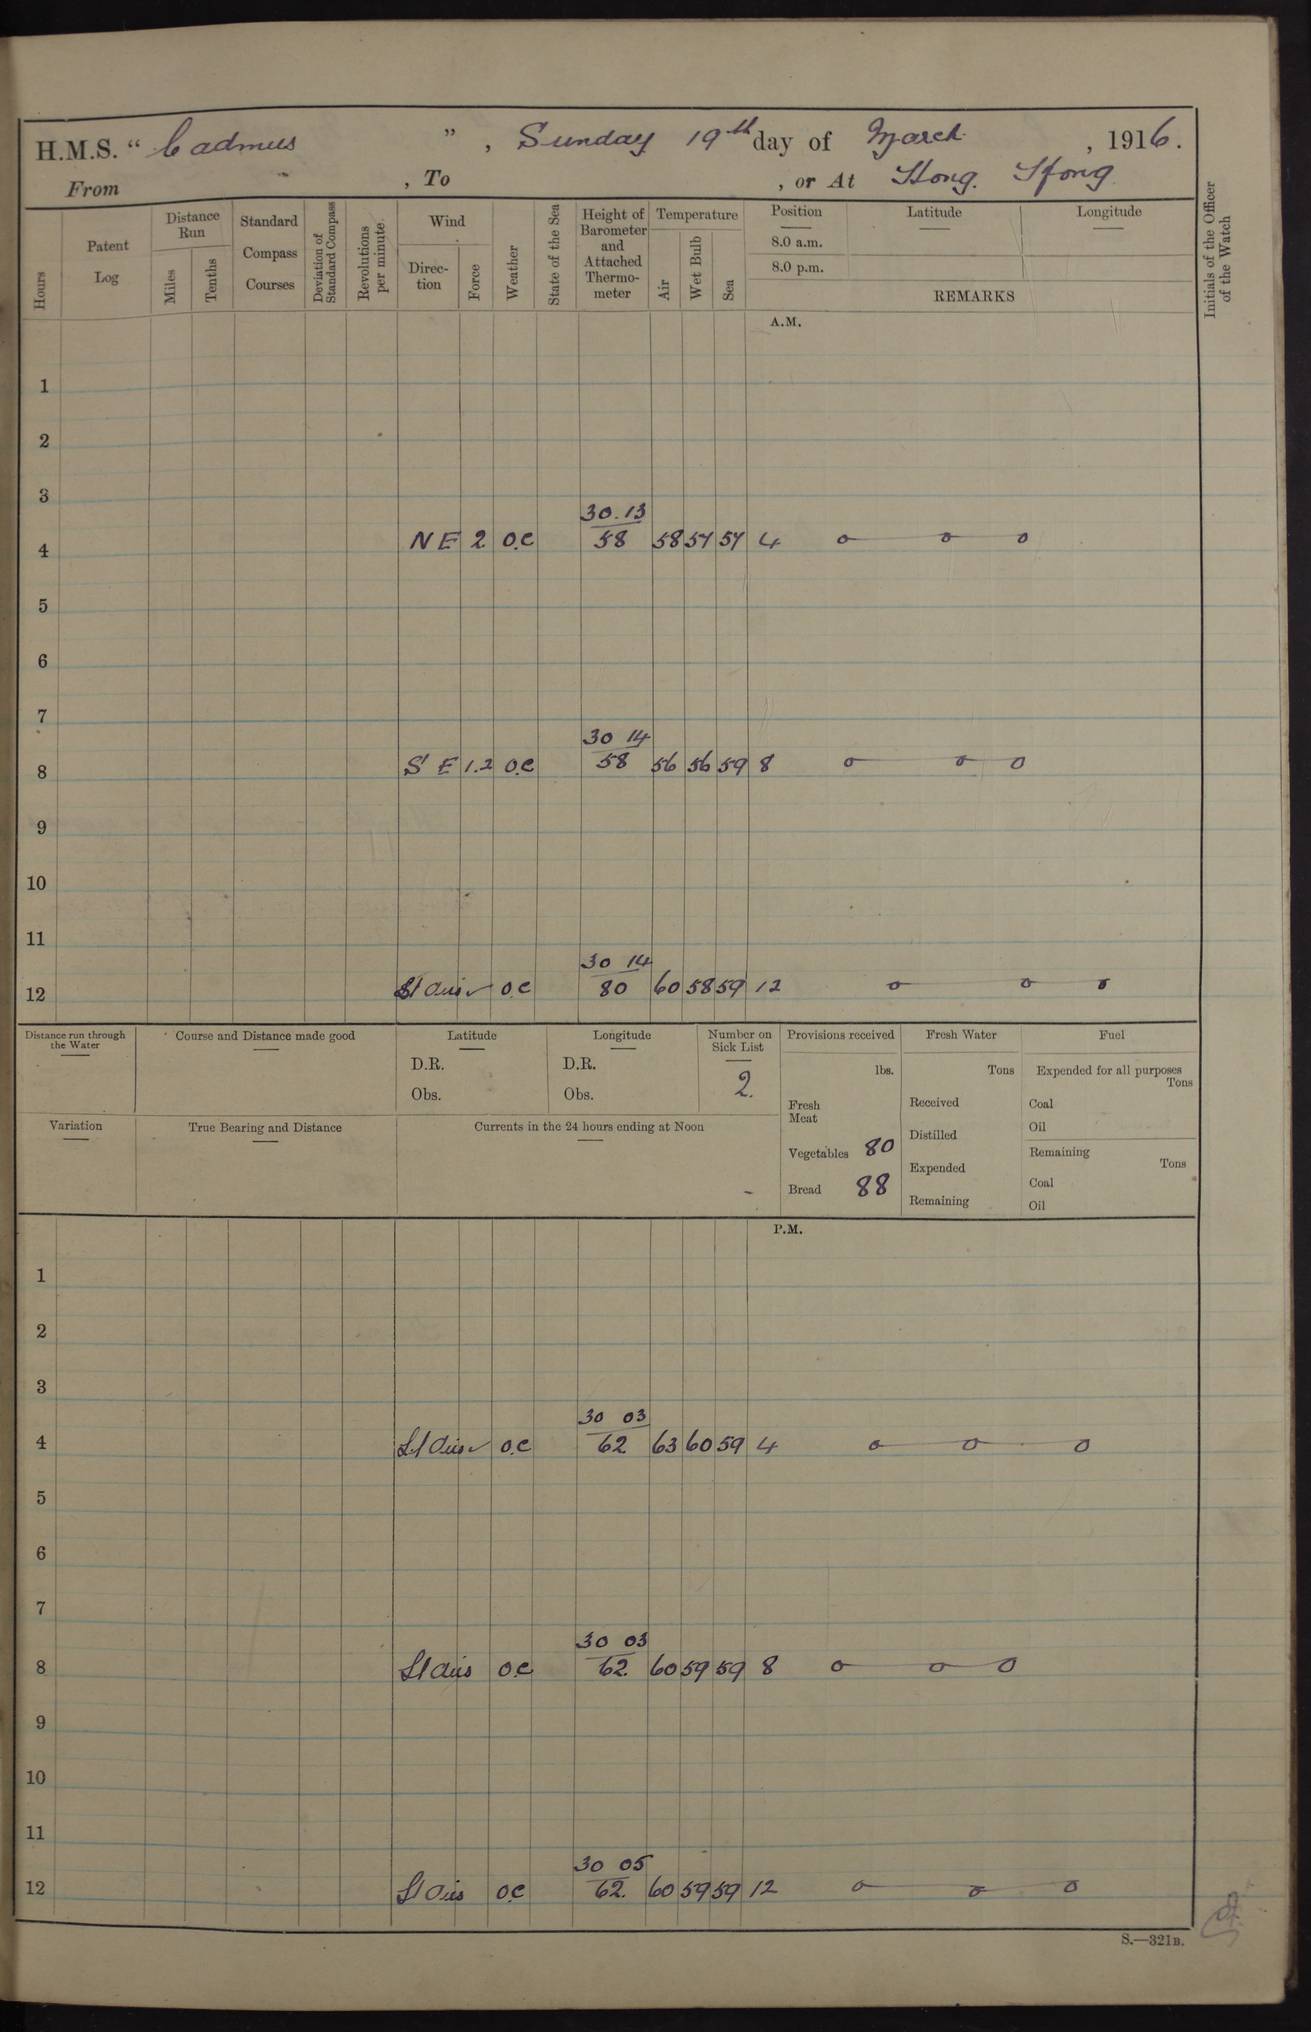 H.M.S. " Cadmus ", Sunday 19th day of March, 1916.
From , To , or At Hong Kong
Hours
Patent Log
Distance Run
Miles
Tenths
Standard Compass Courses
Deviation of Standard Compass
Revolutions per minute
Wind
Direc-tion
Force
Weather
State of the Sea
Height of Barometer and Attached Thermo-meter
Temperature
Air
Wet Bulb
Sea
Position Latitude Longitude
8.0 a.m.
8.0 p.m.
REMARKS
Initials of the Officer of the Watch
A.M.
1
2
3
30.13
4 N E 2 O.C 58 58 57 57 4 o o o
5
6
7
30 14
8 S E 1.2 O.C 58 56 56 59 8 o o o
9
10
11
30 14
12 Lt airs O.C 80 60 58 59 12 o o o
Distance run through the Water
Course and Distance made good
Latitude
D.R.
Obs.
Longitude
D.R.
Obs.
Number on Sick List
2.
Provisions received
lbs.
Fresh Meat
Vegetables 80
Bread 88
Fresh Water
Tons
Received
Distilled
Expended
Remaining
Fuel
Expended for all purposes
Tons
Coal
Oil
Remaining
Tons
Coal
Oil
Variation
True Bearing and Distance
Currents in the 24 hours ending at Noon
P.M.
1
2
3
30 03
4 Lt airs O.C 62 63 60 59 4 o o o
5
6
7
30 03
8 Lt airs O.C 62. 60 59 59 8 o o o
9
10
11
30 05
12 Lt airs O.C 62. 60 59 59 12 o o o
S.—321B.